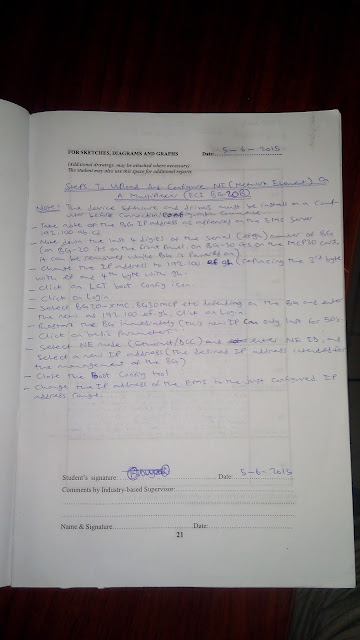 FOR SKETCHES, DIAGRAMS AND GRAPHS Date: 5-6-2015
(Additional drawings, may be attached where necessary)
The student may also use this space for additional reports
Steps To Upload And Configure NE (Network Element) On
A Multiplexer (ECI BG20B)
Note: The device software and drivers must be install in a
user before connection configuration commence
- Take note of the BG IP address as offered by the EMS server
192.100.ab.cd
- Note down the last 4 digits of the serial (efgh) number of BG
(on BG-20 its on the front but on BG-30 its on the MCP30 card,
it can be removed while BG is powered on)
- Change the IP address to 192.100.ef.gh (replacing the 3rd byte
with ef and 4th byte with gh.
- Click on LCT boot Config icon.
- Click on Login
- Select BG20-XMC, BG30MCP etc depending on the BG and enter
the new ip 192.100.ef.gh, Click on Login
- Restart the BG immediately (this new IP can only last for 50s)
- Click on basic Parameters
- Select NE mode (Gateway/DCC) and enter NE ID, and
Select a new IP address (The desired IP address intended for
the management of the BG)
- Close the Boot Config tool
- Change the IP address of the EMS to the just configured IP
address range.
Student's signature: Date: 5-6-2015
Comments by Industry-based Supervisor:
Name & Signature Date:
21